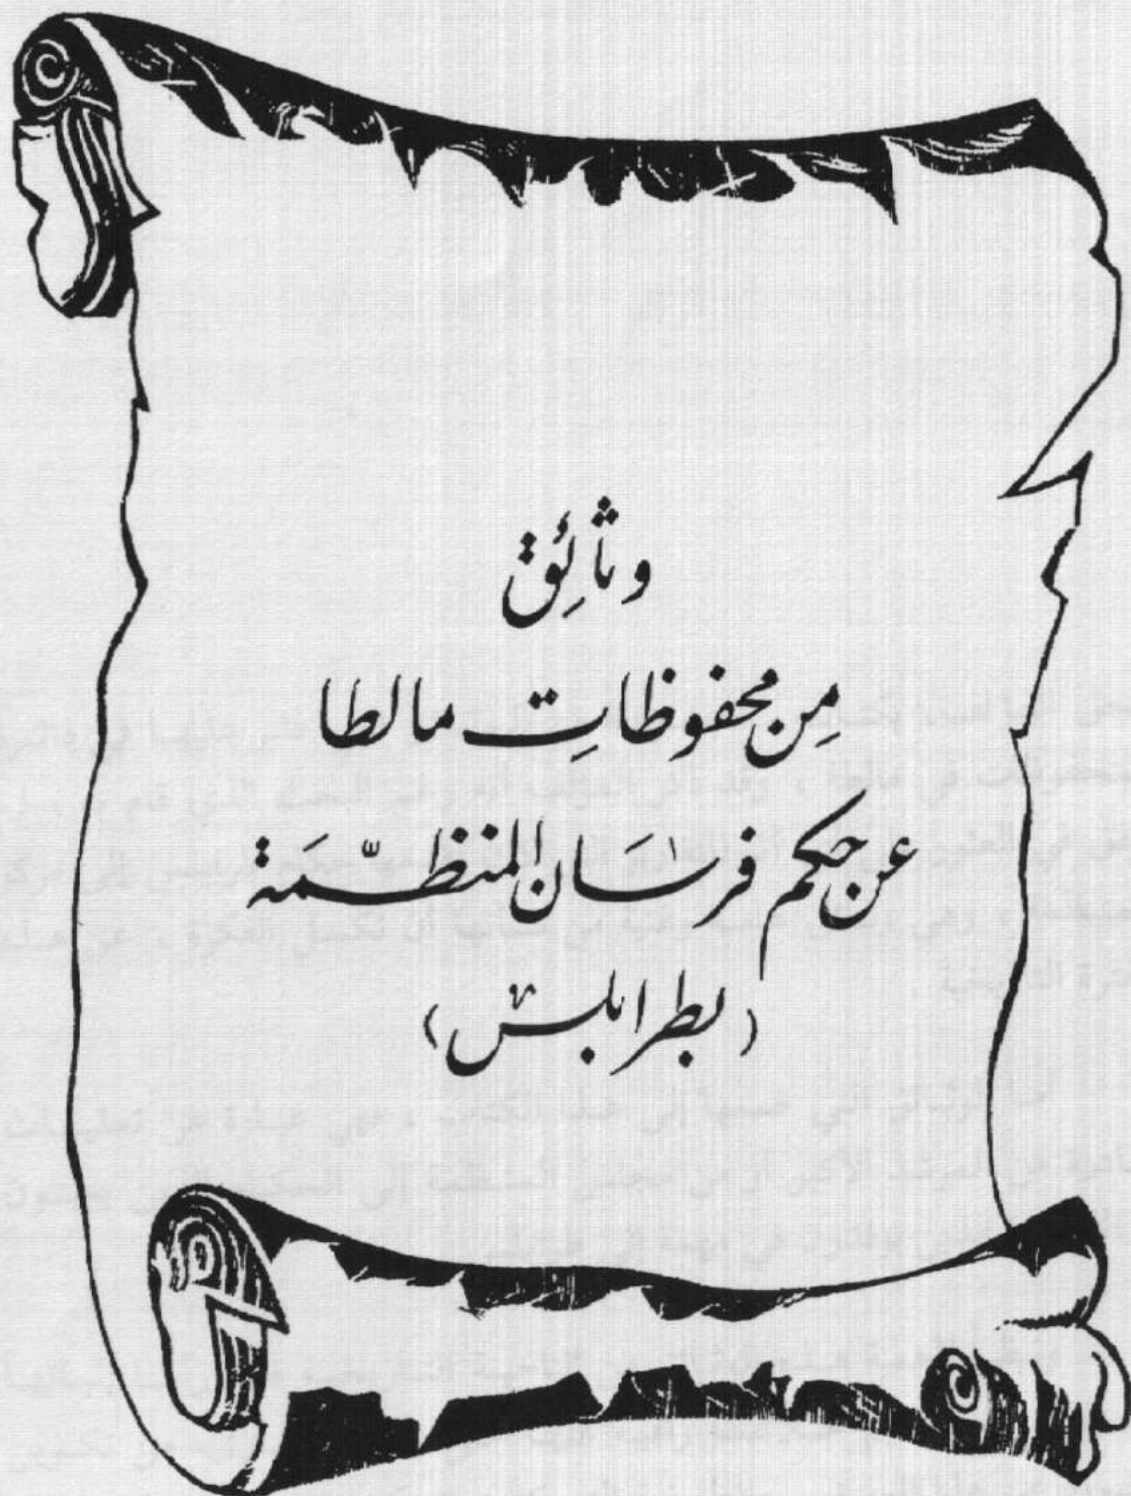 وثائق
مِن محفوظاتِ مالطا
عن حكم فرسَان المنظّمَة
(بطرابلس)